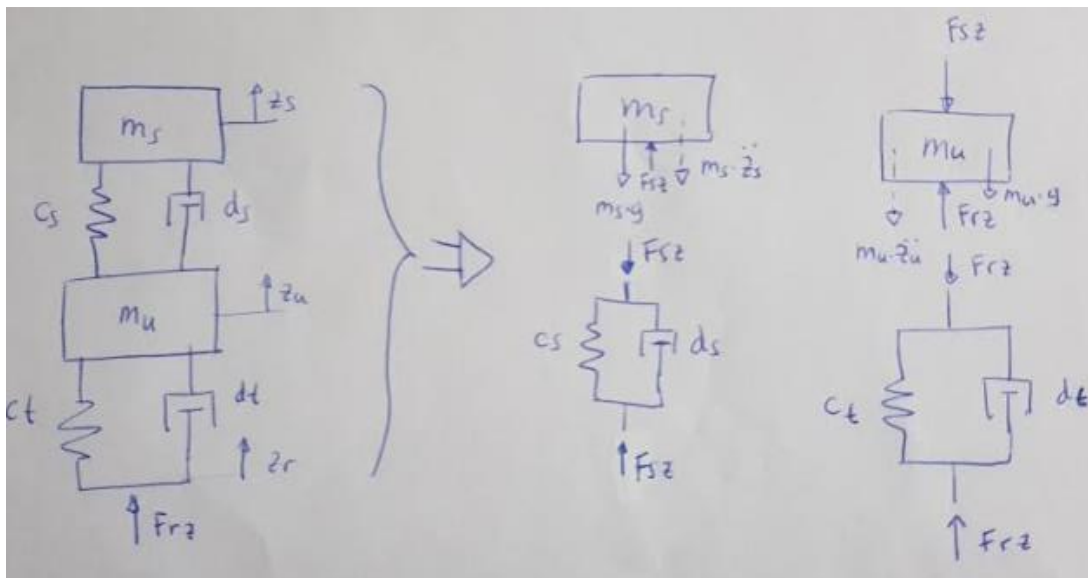 ms
zs
cs
ds
mu
zu
ct
dt
zr
Frz
ms
ms·g
Fsz
ms·z̈s
Fsz
cs
ds
Fsz
Fsz
mu
mu·z̈u
Frz
mu·g
Frz
ct
dt
Frz